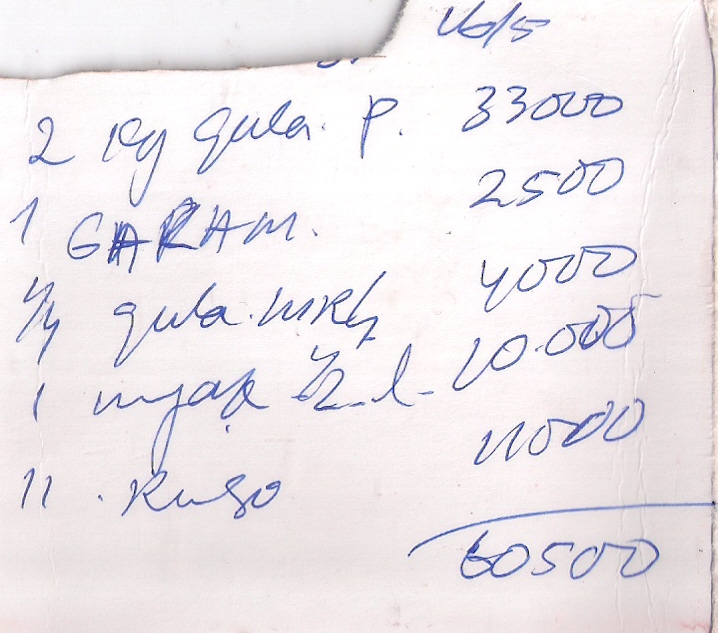 16/5
2 kg gula. P. 33000
1 GARAM. 2500
1/4 gula. mRh 4000
1 myak 1/2 l. 10.000
11. Kuso 11000
60500